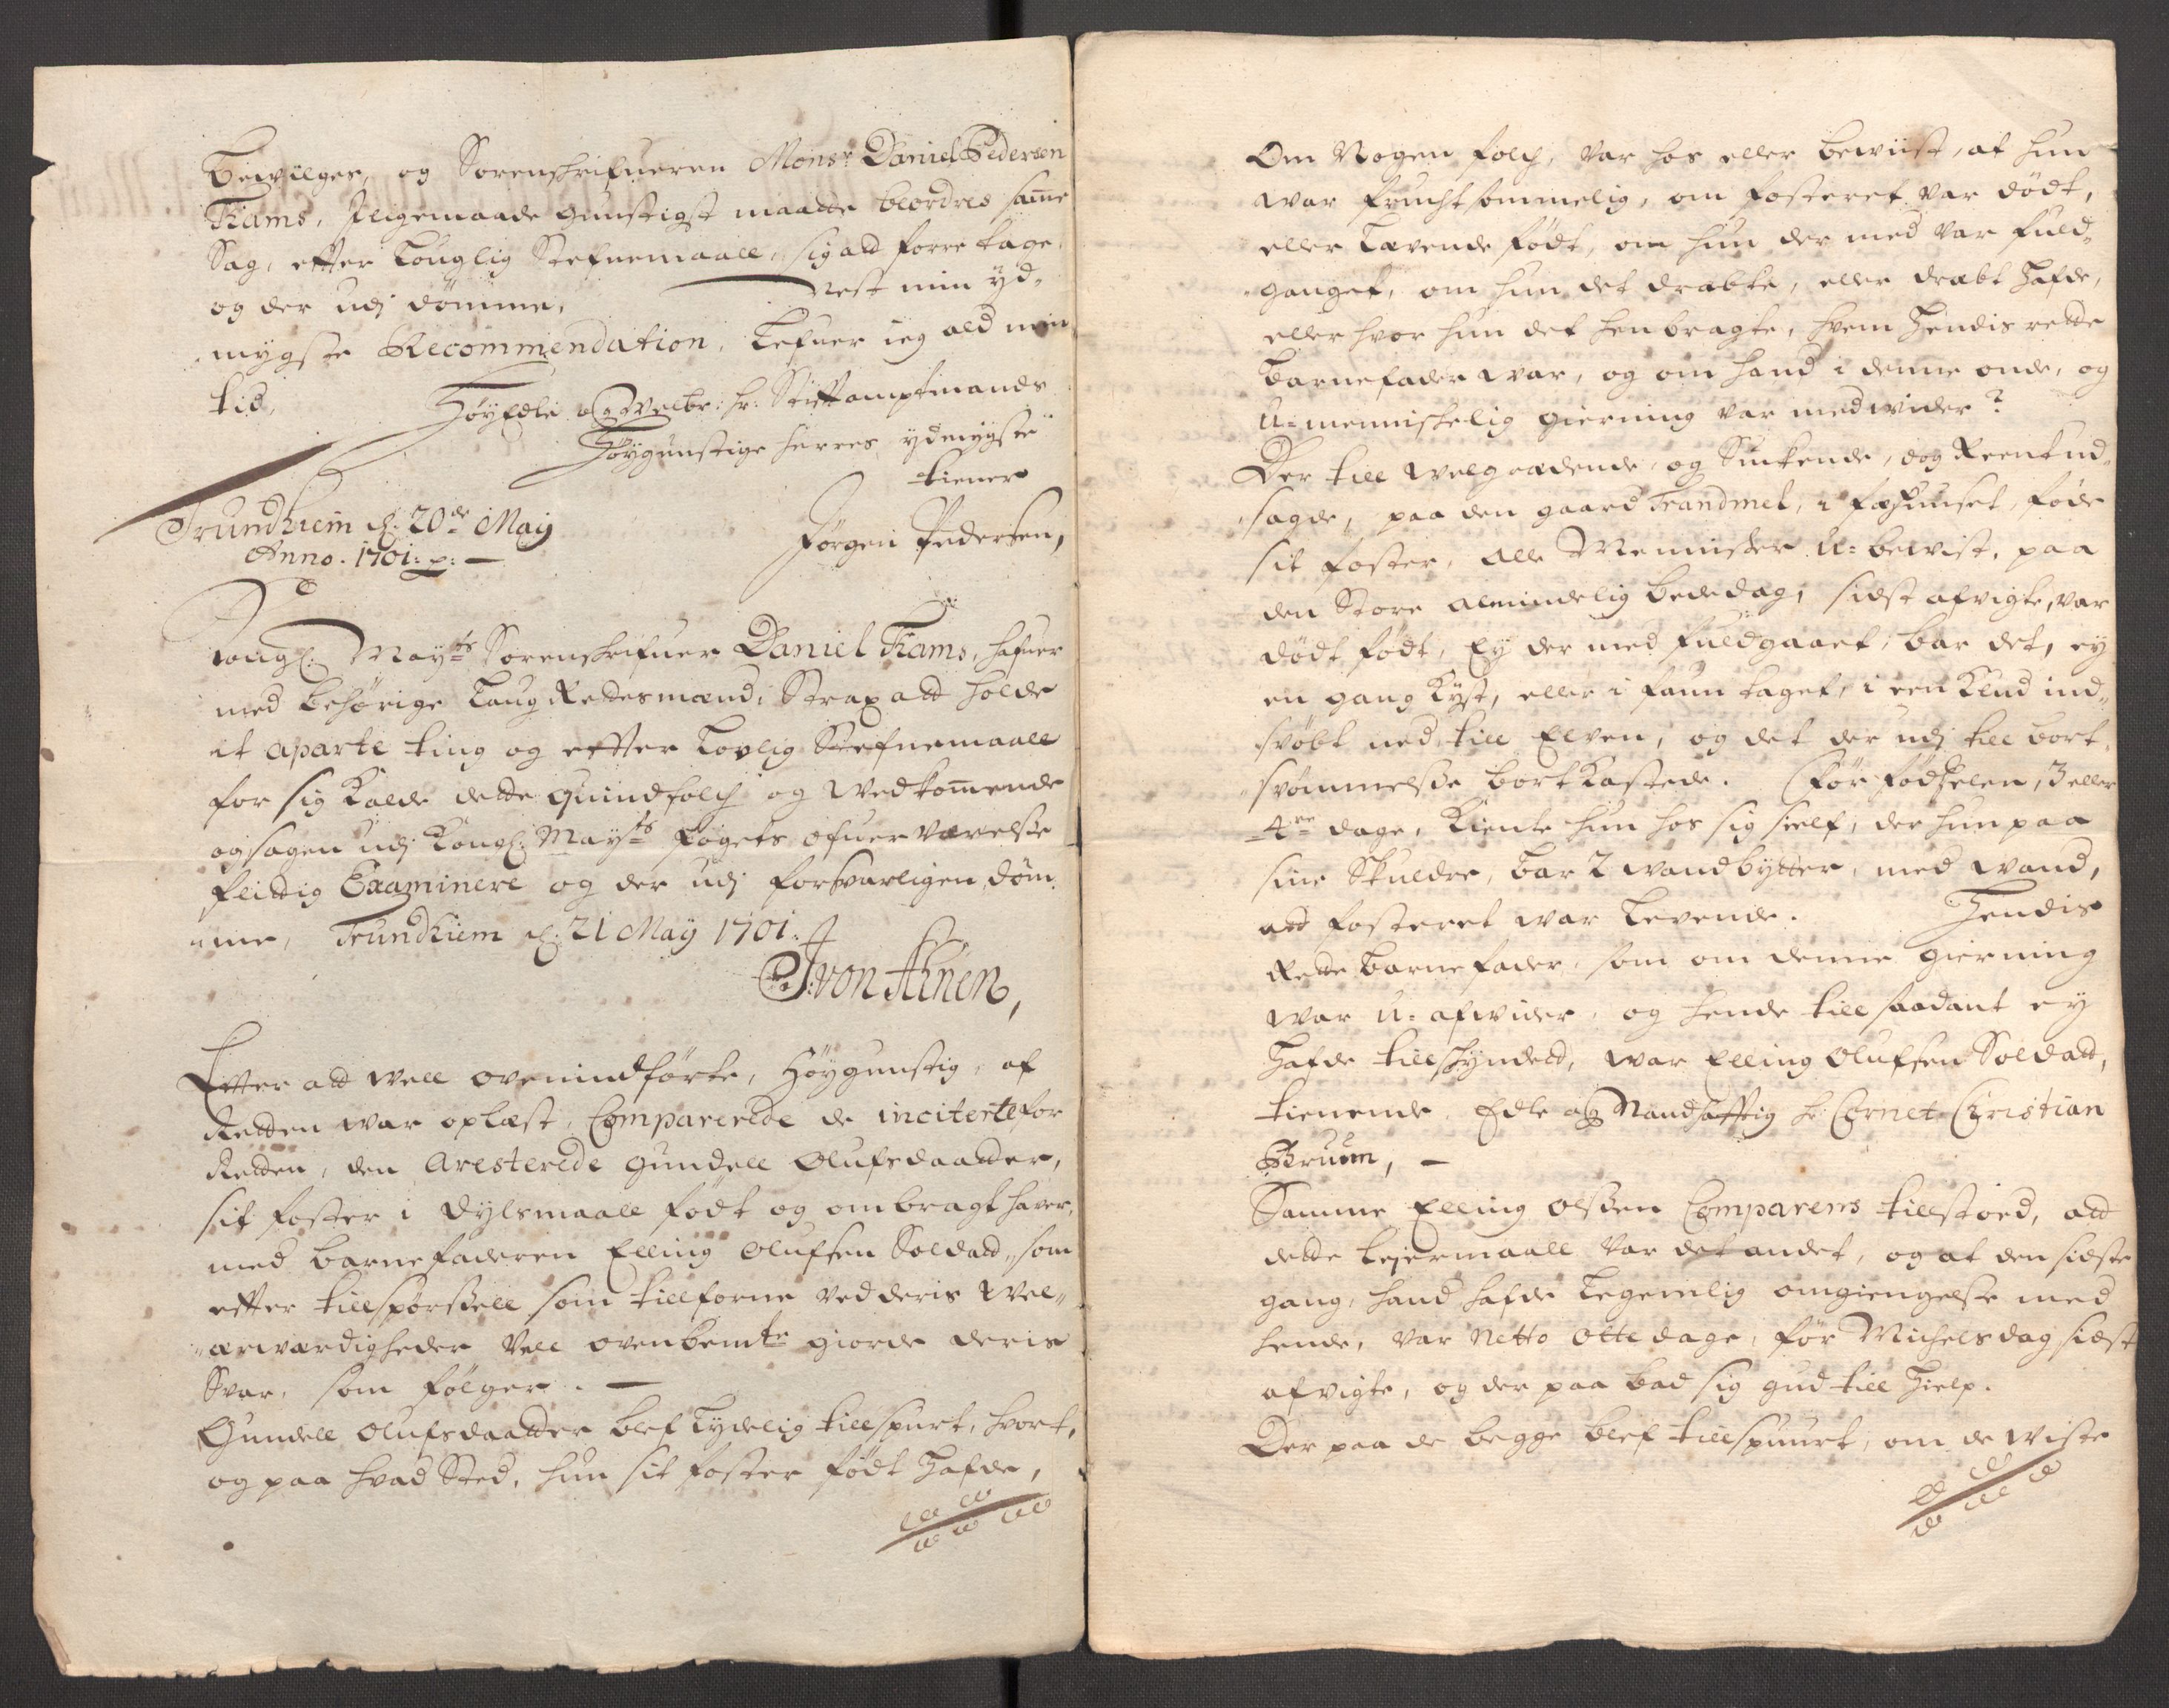 Bewilges, og Sorenskrifueren Monsr Daniel Pedersen
Rams, iligemaade gunstigst maatte beordres same
Sag, effter Louglig Stefnemaall, sig att forre tage
og der udj dømme, Nest min yd„
„mygste Recommendation, Lefuer ieg ald min
tid,
Høyædle og Welbr: hr: Stiftamptmands
Høygunstige herres ydmygste
tiener
Jørgen Pedersen,
Trundhiem d: 20de Maÿ
Anno. 1701: p: —
Kongl: Mayts Sorenskrifuer Daniel Rams, hafuer
med behørige Laug Rettesmænd, Strax att holde
et aparte ting og effter Lovlig Stefnemaall
for sig Kalde dette quindfolch og Wedkommende
og sagen udj Kongl: Mayts fogets ofuerværelse
flittig Examinere og der udj forsvarligen døm„
„me, Trundhiem d: 21 Maÿ 1701.
J: von Ahnen,
Efter att Well ovenindførte, Høygunstig, af
Retten war oplæst, Comparerede de inciterte for
Retten, den Aresterede Gundell Olufsdaatter,
sit foster i Dylsmaall født og ombragt haver,
med barnefaderen Elling Olufsen Soldatt, som
effter tillspørsell som tillforne ved deris Wel„
„ærværdigheder Vell ovenbemte giorde deris
Svar, som følger. —
Gundell Olufsdaatter blef Tydelig tillspurt, hvort,
og paa hvad Sted, hun sit foster født Hafde,
Om Nogen folch, Var hos eller bewiist, at hun
war fruchtsommelig, om fosteret var dødt,
eller Levende født, om hun der med var fuld„
„ganget, om hun det dræbte, eller dræbt Hafde,
eller hvor hun det henbragte, hvem Hendis rette
Barnefader war, og om hand i denne onde, og
u=menniskelig gierning var medwider?
Der till Welgrædende, og Suckende, dog Reent ud„
„sagde, paa den gaard Trandmel, i fæhuuset, føde
sit foster, alle Mennisker u=bevist, paa
den Store almindelig bededag, sidst afvigte, var
dødt født, Ey der med fuldgaaet, bar det, ey
en gang Kyst, eller i faun taget, i een Klud ind„
„svøbt ned till Elven, og det der udj till bort„
„svømmelse bortkastede. Før fødselen, 3 eller
4re dage, Kiente hun hos sig sielf, der hun paa
sine Skuldre, bar 2 wandbytter, med wand,
att fosteret war Levende. Hendis
Rette barnefader, som om denne gierning
war u=afwider, og hende till saadant ey
Hafde tillskyndett, war Elling Olufsen Soldatt,
tienende Edle og Mandhafftig hr: Cornet Christian
Bruun, —
Samme Elling Olssen Comparens tillstoed, att
dette Lejermaall var det andet, og at den sidste
gang, hand hafde Legemlig omgiengelse med
hende, var Netto otte dage, før Michelsdag sidst
afvigte, og der paa bad sig gud till Hielp.
Der paa de begge blef tillspuurt, om de wiste